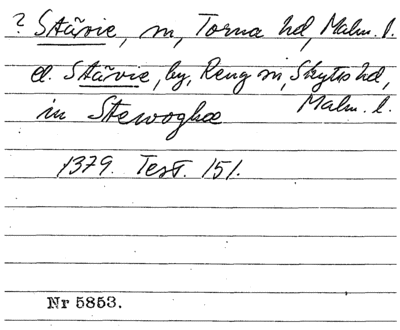 ? Stävie, sn, Torna hd, Malm. l.
el. Stävie, by, Reng sn, Skytts hd,
Malm. l.
in Stewoghæ
1379. Test. 151.
Nr 5853.